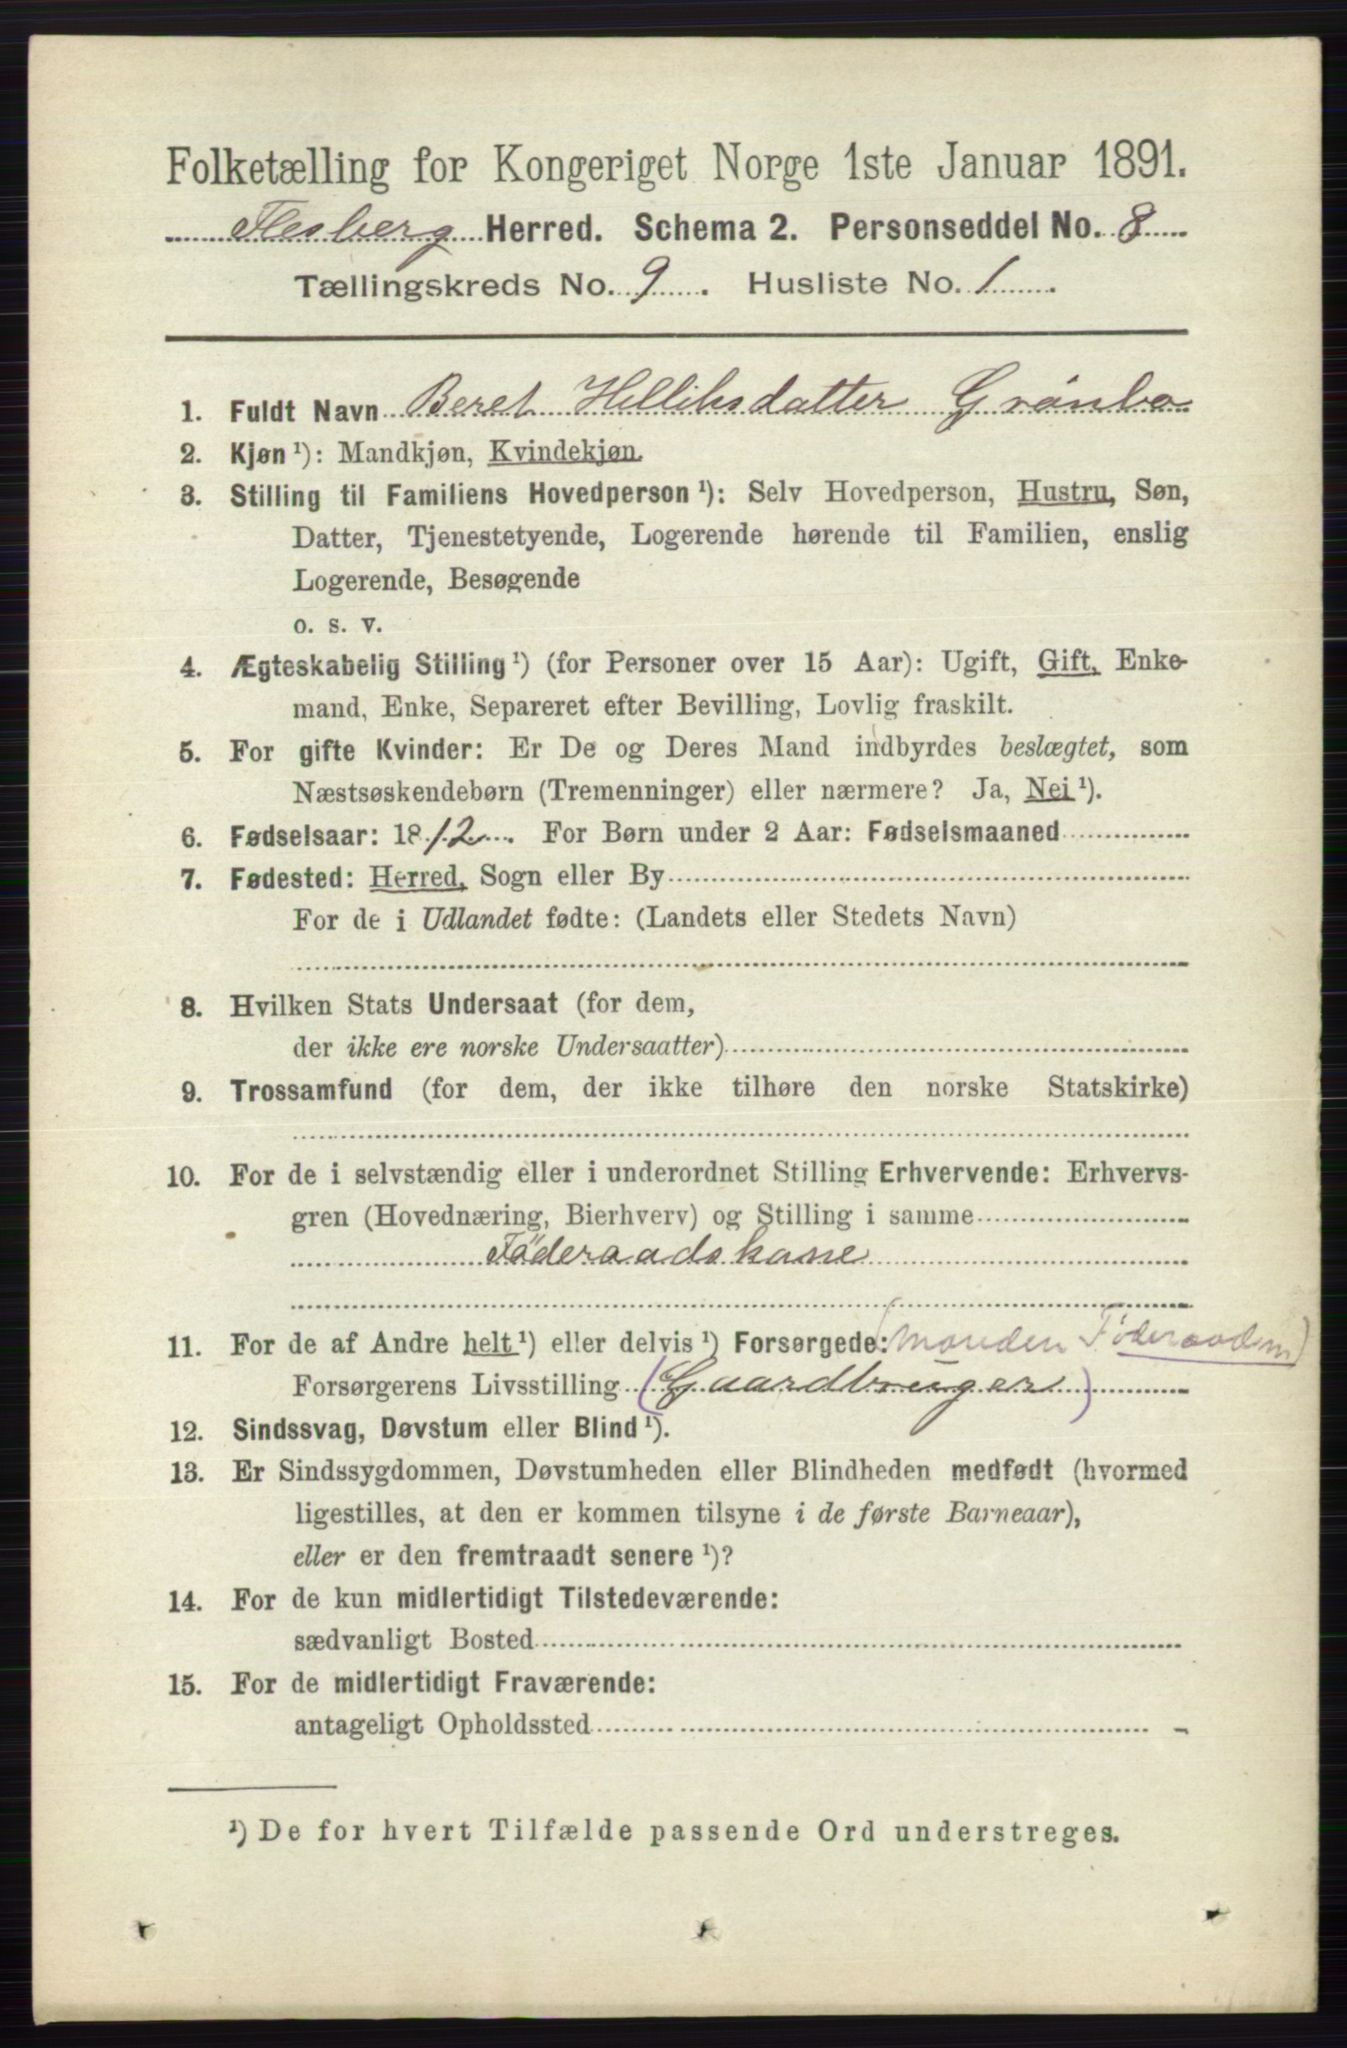 Folketælling for Kongeriget Norge 1ste Januar 1891.
Flesberg Herred. Schema 2. Personseddel No. 8
Tællingskreds No. 9. Husliste No. 1
1. Fuldt Navn Beret Helliksdatter Grønbo
2. Kjøn ¹): Mandkjøn, Kvindekjøn.
3. Stilling til Familiens Hovedperson ¹): Selv Hovedperson, Hustru, Søn,
Datter, Tjenestetyende, Logerende hørende til Familien, enslig
Logerende, Besøgende
o. s. v.
4. Ægteskabelig Stilling ¹) (for Personer over 15 Aar): Ugift, Gift, Enke-
mand, Enke, Separeret efter Bevilling, Lovlig fraskilt.
5. For gifte Kvinder: Er De og Deres Mand indbyrdes beslægtet, som
Næstsøskendebørn (Tremenninger) eller nærmere? Ja, Nei ¹).
6. Fødselsaar: 1812. For Børn under 2 Aar: Fødselsmaaned
7. Fødested: Herred, Sogn eller By
For de i Udlandet fødte: (Landets eller Stedets Navn)
8. Hvilken Stats Undersaat (for dem,
der ikke ere norske Undersaatter)
9. Trossamfund (for dem, der ikke tilhøre den norske Statskirke)
10. For de i selvstændig eller i underordnet Stilling Erhvervende: Erhvervs-
gren (Hovednæring, Bierhverv) og Stilling i samme
Föderaadskone
11. For de af Andre helt ¹) eller delvis ¹) Forsørgede: (manden Føderaadsm)
Forsørgerens Livsstilling (Gaardbruger)
12. Sindssvag, Døvstum eller Blind ¹).
13. Er Sindssygdommen, Døvstumheden eller Blindheden medfødt (hvormed
ligestilles, at den er kommen tilsyne i de første Barneaar),
eller er den fremtraadt senere ¹)?
14. For de kun midlertidigt Tilstedeværende:
sædvanligt Bosted
15. For de midlertidigt Fraværende:
antageligt Opholdssted
¹) De for hvert Tilfælde passende Ord understreges.